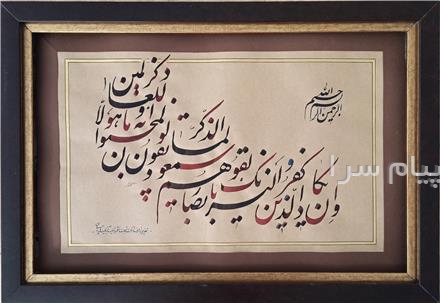 بسم الله الرحمن الرحیم
وان یکاد الذین کفروا لیزلقونک بابصارهم لما سمعوا الذکر و یقولون انه لمجنون و ما هو الا ذکر للعالمین
پیام سرا